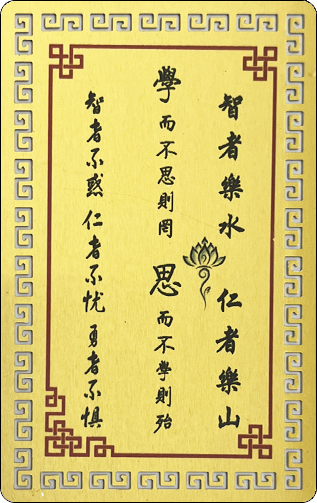 智者樂水 仁者樂山
學而不思則罔 思而不學則殆
智者不惑 仁者不忧 勇者不惧